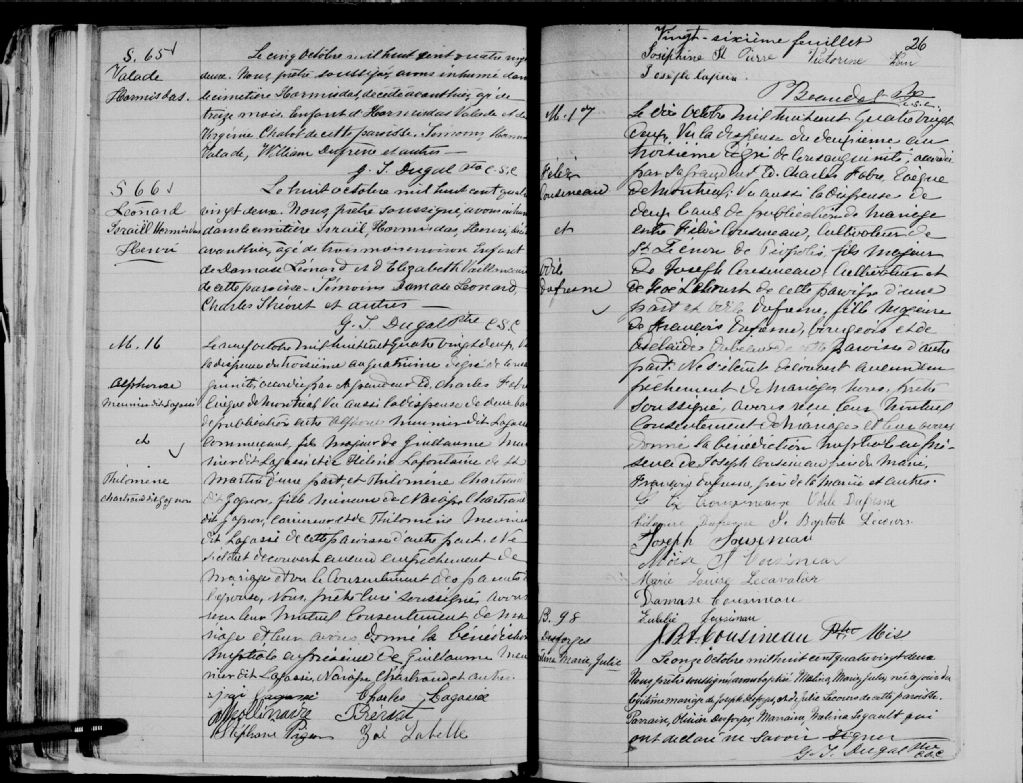 S. 65
Valade
Hormisdas.
Le cinq Octobre mil huit cent quatre vingt
deux. Nous, prêtre soussigné, avons inhumé dans
le cimetière Hormisdas, décédé avanthier, agé de
treize mois. Enfant d'Hormisdas Valade et de
Virginie Chalot de cette paroisse. Témoins, Hormisdas
Valade, William Dufresne et autres —
G. I. Dugal ptre C.S.C
S 66
Léonard
Israël Hormisdas
Henri
Le huit octobre mil huit cent quatre
vingt deux. Nous, prêtre soussigné, avons inhumé
dans le cimetière Israël, Hormisdas, Henri, décédé
avanthier, âgé de trois mois environ Enfant
de Damase Léonard et d'Elizabeth Vaillancourt
de cette paroisse. Témoins Damase Léonard,
Charles Théoret et autres —
G. I. Dugal ptre C.S.C
M. 16
Alphonse
Meunier dit Lagassé
et
Philomène
Chartrand dit Gagnon
Le neuf Octobre mil huit cent quatre vingt deux, Vu
la dispense du troisième au quatrième degré de
accordée par Sa Grandeur Ed. Charles Fabre
Evêque de Montréal, Vu aussi la dispense de deux bans
de publication entre Alphonse Meunier dit Lagassé
Commerçant, fils majeur de Guillaume Meu
nier dit Lagassé et de Hélène Lafontaine de St
Martin d'une part, et Philomène Chartrand
dit Gagnon, fille mineure de Narcisse Chartrand
dit Gagnon, et de Philomène Meunier
dit Lagassé de cette paroisse d'autre part, ne
s'étant découvert aucun empêchement de
mariage et vu le Consentement des parents de
l'épouse, Nous, prêtre Curé soussigné, avons
reçu leur mutuel Consentement de ma
riage et leur avons donné la bénédiction
nuptiale en présence de Guillaume Meu
nier dit Lagassé, Narcisse Chartrand et autres
Charles Lagassé
Apollinaire
Stéphane
Zoé Labelle
Vingt-sixième feuillet 26
Joséphine St Pierre Victorine
Joseph Lapierre
Beaudet
M. 17
Félix
Cousineau
et
Odile
Dufresne
Le dix Octobre mil huit cent quatre vingt
deux, Vu la dispense du deuxième au
troisième degré de consanguinité, accordée
par Sa Grandeur Ed. Charles Fabre Evêque
de Montréal, Vu aussi la dispense de
deux bans de publication de mariage
entre Félix Cousineau, Cultivateur de
St fils majeur
de Joseph Cousineau, Cultivateur et
de de cette paroisse d'une
part et Odile Dufresne, fille mineure
de François Dufresne, bourgeois et de
Adelaide de cette paroisse d'autre
part. Ne s'étant découvert aucun em
pêchement de mariage, nous, prêtre
soussigné, avons reçu leur mutuel
Consentement de mariage et leur avons
donné la bénédiction nuptiale en pré-
sence de Joseph Cousineau, père du marié,
François Dufresne, père de la mariée et autres.
Cousineau Odile Dufresne
Dufresne J. Baptiste Lecours
Joseph Cousineau
Moïse Cousineau
Marie Louise Lecavalier
Damase Cousineau
Eulalie Cousineau
J. Bt. Cousineau Ptre Mis
B. 98
Desforges
Marie Julie
Le onze Octobre mil huit cent quatre vingt deux
Nous prêtre soussigné avons baptisé Malina, Marie, Julie, née ce jour du
légitime mariage de Joseph Desforges, et de Julie Lecours de cette paroisse.
Parrain, Olivier Desforges, Marraine, Malina Legault qui
ont déclaré ne savoir signer
G. I. Dugal ptre C.S.C